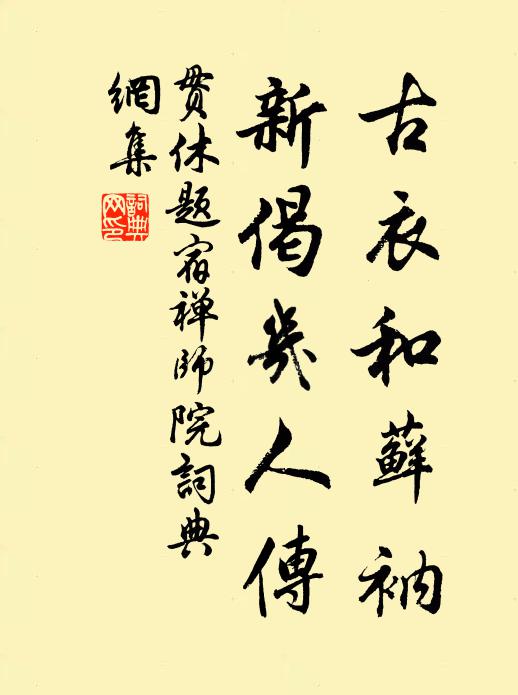 古衣和蘚衲
新偈幾人傳
贯休题宿禅师院詞典
網集
詞典
网印